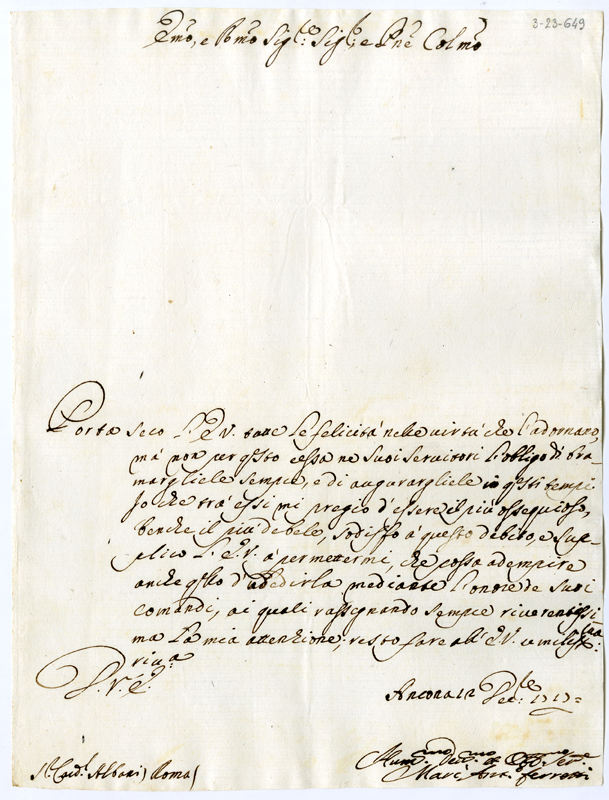 3-23-649
Emo, e Rmo Sigre Sigre e Pne Colmo
Porta seco l'E.V. tutte le felicità nelle virtù che l'adornano,
mà non per qsto cessa ne Suoi Servitori l'obligo di bra-
margliele sempre, e di augurargliele in qsti tempi
Io che trà essi mi pregio d'essere il più ossequioso,
benche il più debole, sodisfo à questo debito, e sup-
plico l'E.V. à permettermi, che possa adempire
anche qllo d'ubbedirla mediante l'onore de Suoi
comandi, ai quali rassegnando sempre riverentissi-
ma la mia attenzione, resto fare all'E.V.
ria
D.V.E.
Ancona 12 Xbre
Sr. Card. Albani, Roma
Marc' Ant. Ferretti